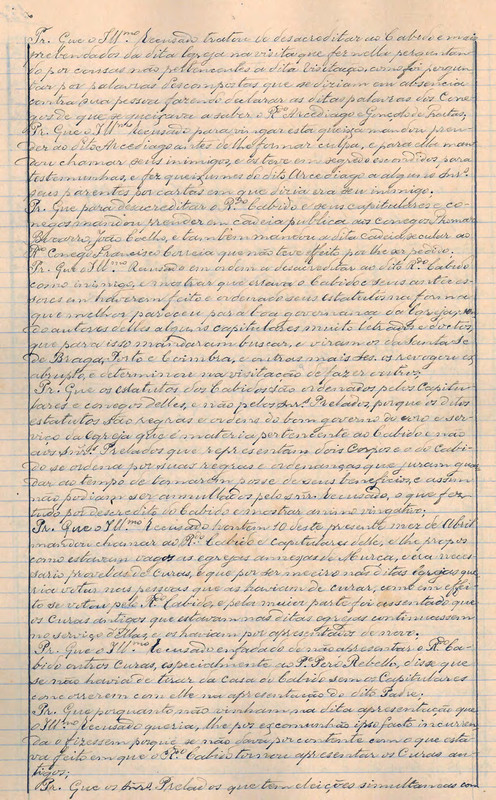 Pr. Que o Illmo Recusado tratou de desacreditar ao Cabido e mais
prebendados da dita Igreja na visita que fez nella perguntan-
do por cousas não pertencentes á dita visitação, como foi pergun-
tar por palavras descompostas que se diziam em absencia
contra sua pessoa fazendo declarar as ditas palavras dos Cone-
gos de que se queixava a saber o Rdo Arcediago e Gonçalo de Freitas,
Pr. Que o Illmo Recusado para vingar esta queixa mandou pren-
der ao dito Arcediago antes de lhe formar culpa, e para elle man-
dou chamar seus inimigos, e os teve em segredo escondidos para
testimunhas, e fez queixumes do dito Arcediago a alguns Snrs
seus parentes por cartas em que dizia era seu inimigo.
Pr. Que para desacreditar o Rdo Cabido e seus capitulares e co-
negos mandou prender em cadeia publica aos Conegos Thomaz
João Coelho, e tambem mandou a dita cadeia secular ao
Rdo Conego Francisco Correia que não teve effeito por lhe ser pedido.
Pr. Que o Illmo Recusado em ordem a desacreditar ao dito Rdo Cabido
como inimigo, e mostrar que errava o Cabido e seus anteces-
sores em haverem feito e ordenado seus estatutos na forma
que melhor pareceu para boa governança da Igreja, sen-
do autores delles alguns capitulares muito letrados e doctos,
que para isso mandaram buscar, e viram os da Santa Sé
de Braga, Porto e Coimbra, e outras mais Sés. os revogou ex
abrupto, e determinou na visitação de fazer outros;
Pr. Que os estatutos dos Cabidos são ordenados pelos Capitu-
lares e conegos delles, e não pelos Snrs Prelados, porque os ditos
estatutos são regras e ordens do bom governo do coro e ser-
viço da Igreja que é materia pertencente ao Cabido e não
aos Snrs Prelados que representam dois Corpos e o do Cabi-
do se ordena por suas regras e ordenanças que juram guar-
dar ao tempo de tomarem posse de seus beneficios, e assim
não podiam ser annullados pelo snr. Recusado, o que fez
tudo por descredito do Cabido e mostrar animo vingativo;
Pr. Que o Illmo Recusado hontem 10 deste presente mez de Abril
mandou chamar ao Rdo Cabido e capitulares delle, e lhe propoz
como estavam vagas as egrejas annexas de Murça, e era neces-
sario provel-as de Curas, e que por ser meeiro nas ditas egrejas que-
ria votar nas pessoas que as haviam de curar, como em effei-
to se votou pelo Rdo Cabido, e pela maior parte foi assentado que
os Curas antigos que estavam nas ditas egrejas continuassem
no serviço dellas, e os haviam por apresentados de novo.
Pr. Que o Illmo Recusado enfadado de não apresentar o Rdo Ca-
bido outros Curas, especialmente ao Pe Pero Rebello, disse que
se não havia de tirar da Casa do Cabido sem os Capitulares
concorrerem com elle na apresentação do dito Padre;
Pr. Que porquanto não vinham na dita apresentação que
o Illmo Recusado queria, lhe poz excommunhão ipso facto incurren-
da o fizessem porque se não dava por contente com o que esta-
va feito em que o Rdo Cabido tornou apresentar os Curas an-
tigos;
Pr. Que os Snrs. Prelados que tem eleições simultaneas com